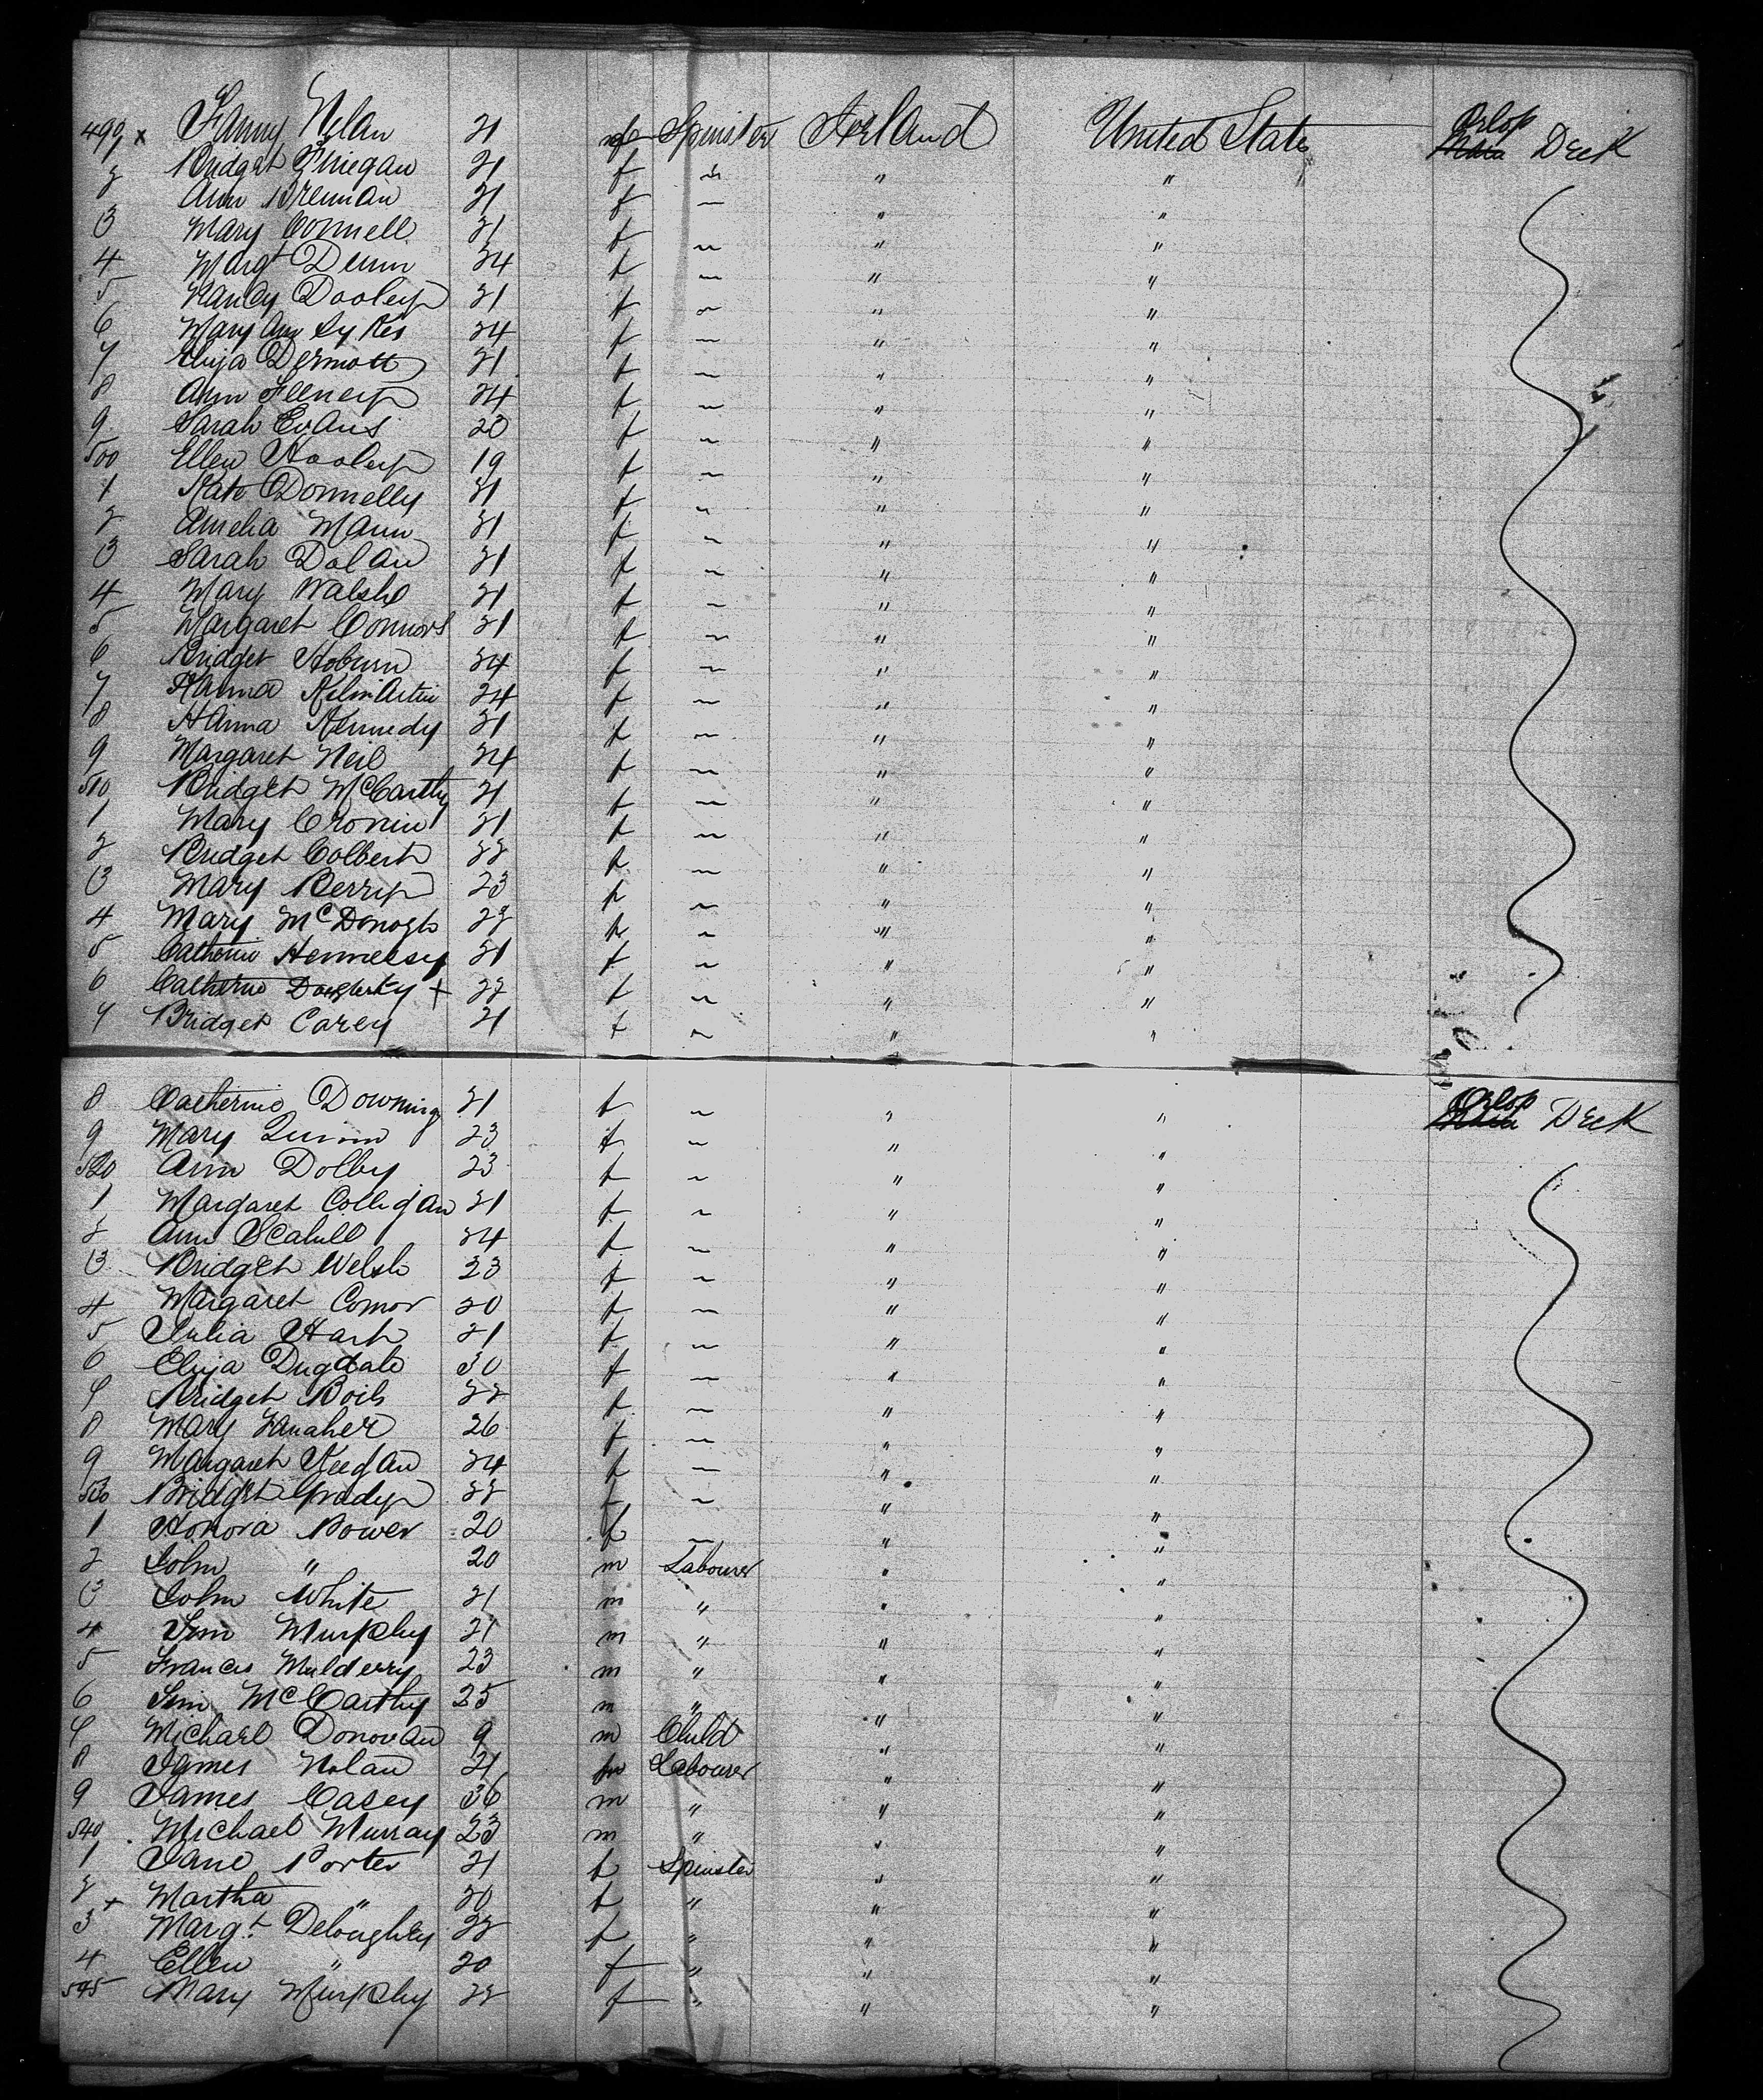 490/1 x Fanny Nilan 21 f Spinster Ireland United States Orlop Deck
2 Bridget Finegan 21 f " " "
Ann Brennan 21 f " " "
3 Mary Connell 21 f " " "
4 Margt Dunn 24 f " " "
5 Nancy Dooley 21 f " " "
6 Mary Ann Sykes 24 f " " "
7 Eliza Dermott 21 f " " "
8 Ann Feeney 24 f " " "
9 Sarah Evans 20 f " " "
500 Ellen Hooley 19 f " " "
1 Kate Donnelly 21 f " " "
2 Amelia Mann 21 f " " "
3 Sarah Dolan 21 f " " "
4 Mary Walshe 21 f " " "
5 Margaret Connors 21 f " " "
6 Bridget Hoburn 24 f " " "
7 Hanna Kilmartin 24 f " " "
8 Hanna Kennedy 21 f " " "
9 Margaret Neil 24 f " " "
510 Bridget McCarthy 21 f " " "
1 Mary Cronin 21 f " " "
2 Bridget Colbert 22 f " " "
3 Mary Berry 23 f " " "
4 Mary McDonogh 22 f " " "
5 Catherine Hennessy 21 f " " "
6 Catherine Dougherty + 22 f " " "
7 Bridget Carey 21 f " " "
8 Catherine Downing 21 f " " " Orlop Deck
9 Mary Quinn 23 f " " "
520 Ann Dolby 23 f " " "
1 Margaret Colligan 21 f " " "
2 Ann Scahill 24 f " " "
3 Bridget Welsh 23 f " " "
4 Margaret Connor 20 f " " "
5 Julia Hart 21 f " " "
6 Eliza Dugdale 30 f " " "
7 Bridget Boils 22 f " " "
8 Mary 26 f " " "
9 Margaret Keegan 24 f " " "
530 Bridget Grady 22 f " " "
1 Honora Power 20 f " " "
2 John " 20 m Labourer " "
3 John White 21 m " " "
4 Jim Murphy 21 m " " "
5 Francis Mulderry 23 m " " "
6 Jim McCarthy 25 m " " "
7 Michael Donovan 9 m Child " "
8 James Nolan 21 m Labourer " "
9 James Casey 36 m " " "
540 Michael Murray 23 m " " "
1 Jane Porter 21 f Spinster " "
2 x Martha " 20 f " " "
3 Margt Deloughrey 22 f " " "
4 Ellen " 20 f " " "
545 Mary Murphy 22 f " " "